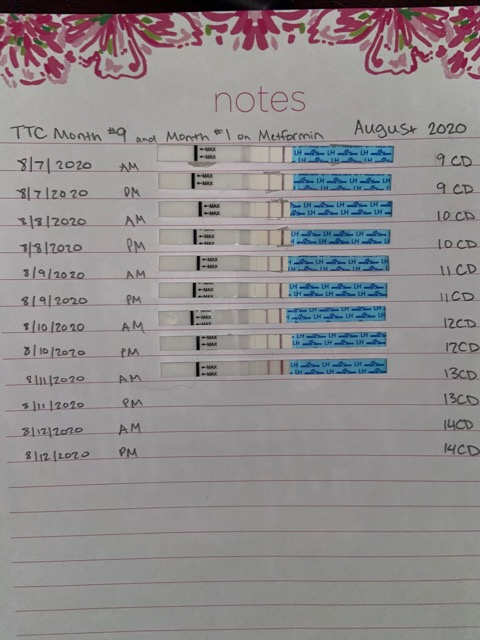 notes
TTC Month #9 and Month #1 on Metformin August 2020
8/7/2020 AM MAX MAX LH LH LH LH LH 9 CD
8/7/2020 PM MAX MAX LH LH LH LH LH 9 CD
8/8/2020 AM MAX MAX LH LH LH LH LH 10 CD
8/8/2020 PM MAX MAX LH LH LH LH LH 10 CD
8/9/2020 AM MAX MAX LH LH LH LH LH 11 CD
8/9/2020 PM MAX MAX LH LH LH LH LH 11 CD
8/10/2020 AM MAX MAX LH LH LH LH LH 12CD
8/10/2020 PM MAX MAX LH LH LH LH LH 12CD
8/11/2020 AM MAX MAX LH LH LH LH LH 13CD
8/11/2020 PM 13CD
8/12/2020 AM 14CD
8/12/2020 PM 14CD